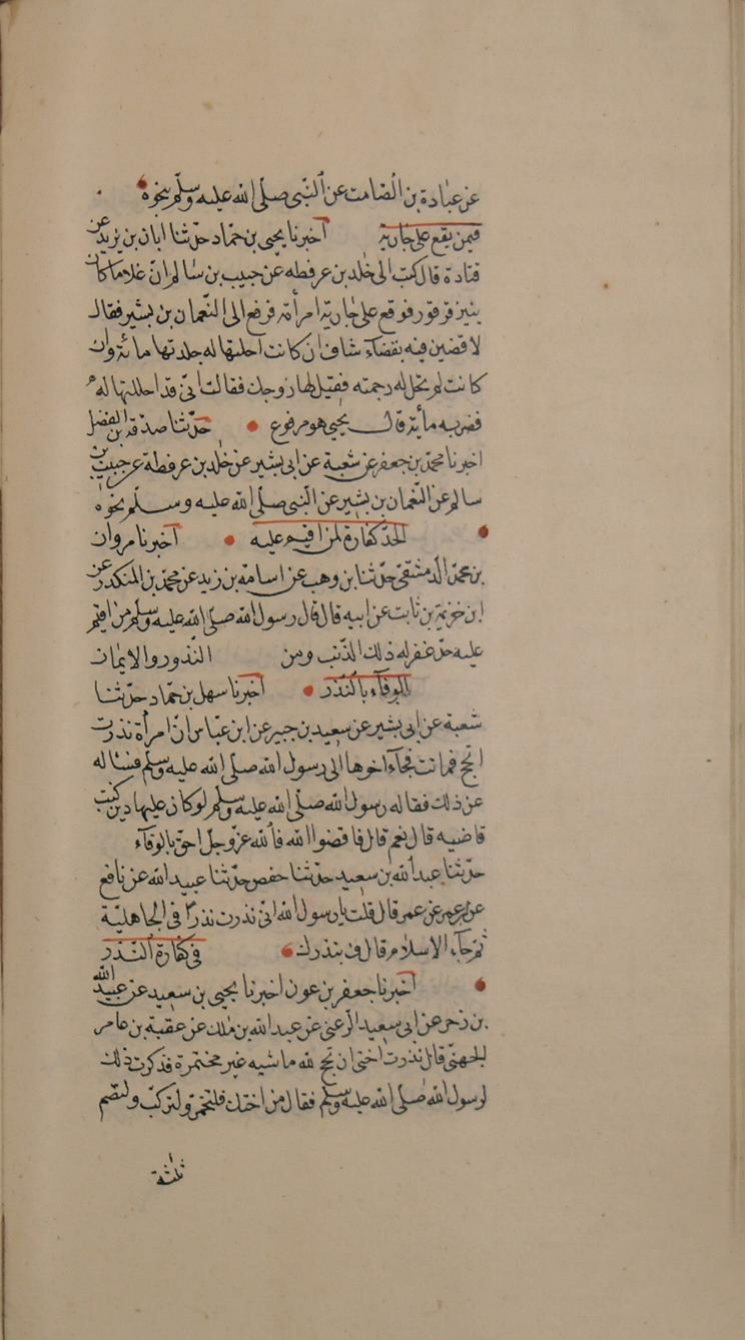 عن عبادة بن الصامت عن النبى صلى الله عليه وسلم بنحوه
فيمن يقع على جارية اخبرنا يحيى بن حماد حدثنا ابان بن يزيد عن
قتادة قال كتب الى خلد بن عرفطه عن حبيب بن سالم ان غلاما كان
ينبز قرقور فوقع على جارية امرأته فرفع الى النعمان بن بشير فقال
لاقضين فيه بقضاء شاف ان كانت احلتها له جلدتها مائة وان
كانت لم تحل له رجمته فقيل لها زوجك فقالت انى قد احللتها له
فضربه مأية قال يحيى هو مرفوع حدثنا صدقة بن الفضل
اخبرنا محمد بن جعفر عن شعبة عن ابى بشير عن خلد بن عرفطة عن حبيب بن
سالم عن النعمان بن بشير عن النبى صلى الله عليه وسلم بنحوه
الحد كفارة لمن اقيم عليه اخبرنا مروان
بن محمد الدمشقى حدثنا بن وهب عن اسامة بن زيد عن محمد بن المنكدر عن
ابن خزيمة بن ثابت عن ابيه قال قال رسول الله صلى الله عليه وسلم من اقيم
عليه حد غفر له ذلك الذنب ومن النذور والايمان
الوفاء بالنذر اخبرنا سهل بن حماد حدثنا
شعبة عن ابى بشير عن سعيد بن جبير عن ابن عباس ان امرأة نذرت
ان تحج فماتت فجاء اخوها الى رسول الله صلى الله عليه وسلم فسئاله
عن ذلك فقال له رسول الله صلى الله عليه وسلم لو كان عليها دين كنت
قاضيه قال نعم قال فاقضوا الله فالله عز وجل احق بالوفاء
حدثنا عبد الله بن سعيد حدثنا حفص حدثنا عبيد الله عن نافع
عن ابن عمر عن عمر قال قلت يا رسول الله انى نذرت نذرا فى الجاهلية
ثم جاء الاسلام قال ف بنذرك فى كفارة النذر
اخبرنا جعفر بن عون اخبرنا يحيى بن سعيد عن عبيد الله
بن زحر عن ابى سعيد الرعنى عن عبد الله بن ملك عن عقبة بن عامر
الجهنى قال نذرت اختى ان تحج لله ماشيه غير مختمرة فذكرت ذلك
لرسول الله صلى الله عليه وسلم فقال مر اختك فلتختمر ولتركب ولتصم
ثلثة